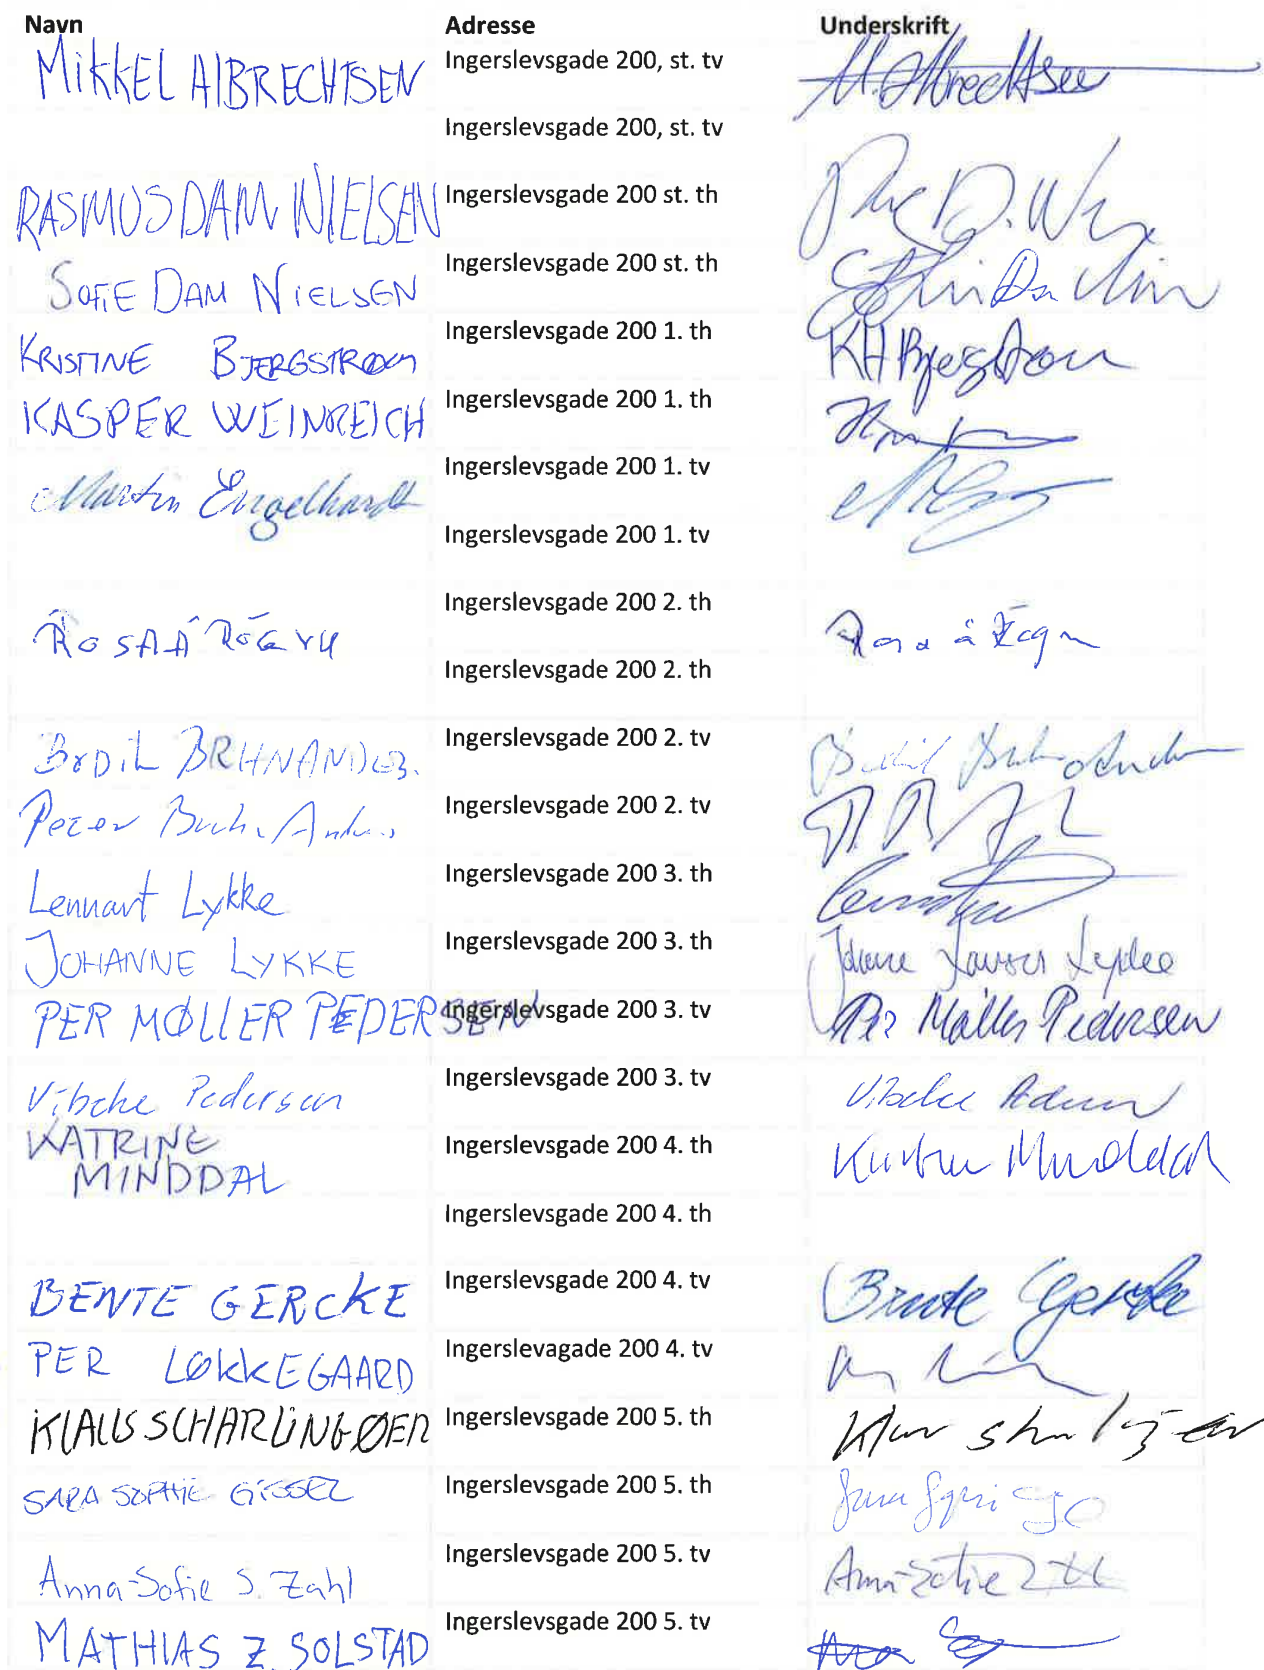 Navn Adresse Underskrift
MIKKEL ALBRECHTSEN Ingerslevsgade 200, st. tv M. Albrechtsen
Ingerslevsgade 200, st. tv
RASMUS DAM NIELSEN Ingerslevsgade 200 st. th
SOFIE DAM NIELSEN Ingerslevsgade 200 st. th
KRISTINE BJERGSTRØM Ingerslevsgade 200 1. th KHBjergstrøm
KASPER WEINREICH Ingerslevsgade 200 1. th
Martin Engelhardt Ingerslevsgade 200 1. tv
Ingerslevsgade 200 1. tv
Ingerslevsgade 200 2. th
RÓSA Á RÓGVU
Ingerslevsgade 200 2. th
BODIL Ingerslevsgade 200 2. tv
Peter Buch Ingerslevsgade 200 2. tv
Lennart Lykke Ingerslevsgade 200 3. th
JOHANNE LYKKE Ingerslevsgade 200 3. th
PER MØLLER PEDERSEN Ingerslevsgade 200 3. tv Per Møller Pedersen
Vibeke Pedersen Ingerslevsgade 200 3. tv Vibeke
KATRINE Ingerslevsgade 200 4. th Katrine Minddal
MINDDAL
Ingerslevsgade 200 4. th
BENTE GERCKE Ingerslevsgade 200 4. tv Bente Gercke
PER LØKKEGAARD Ingerslevagade 200 4. tv
KLAUS SCHARLING ØER Ingerslevsgade 200 5. th
SARA SOPHIE GISSEL Ingerslevsgade 200 5. th
Anna-Sofie S. Zahl Ingerslevsgade 200 5. tv Anna-Sofie
MATHIAS Z. SOLSTAD Ingerslevsgade 200 5. tv